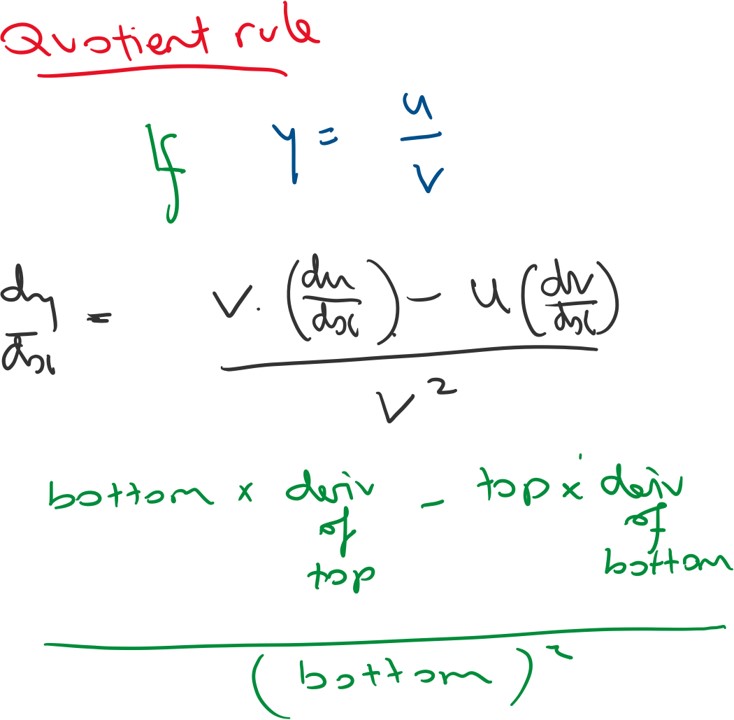 Quotient rule
If y = u/v
dy/dx = v. (du/dx) - u (dv/dx)
v²
bottom x deriv of top - top x deriv of bottom
(bottom)²